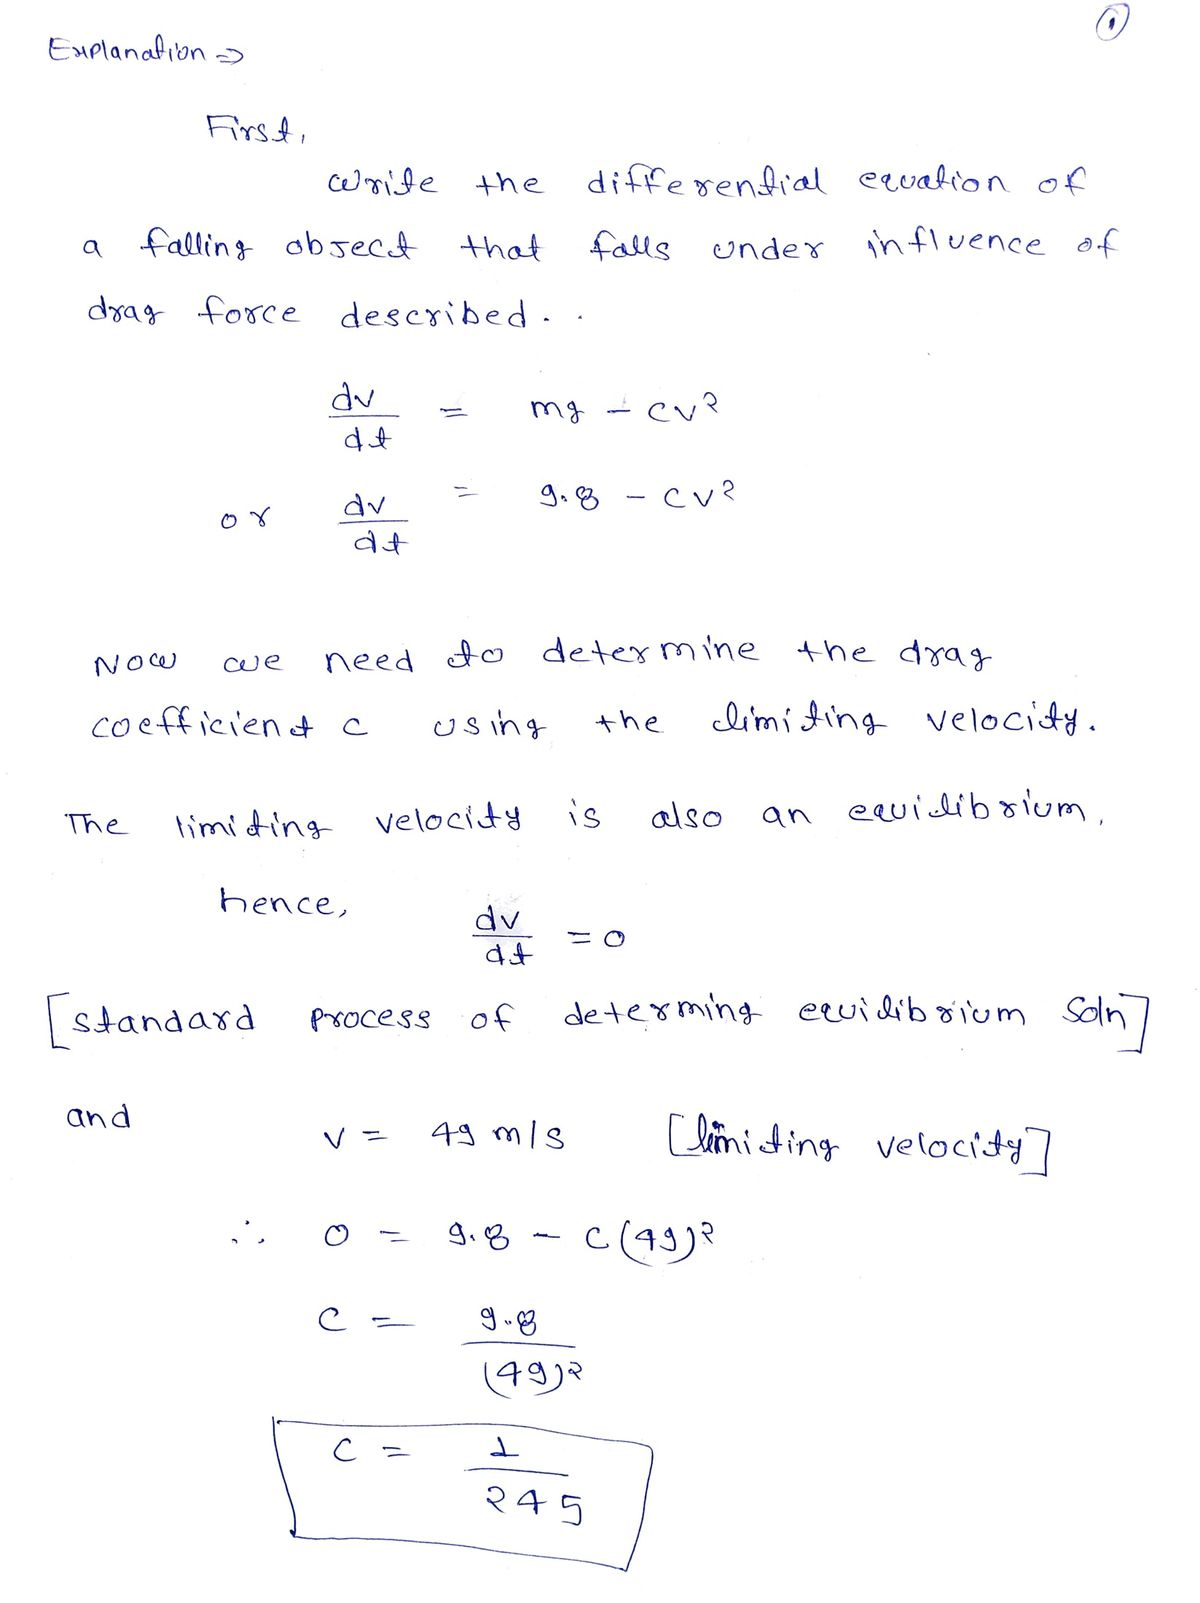 1
Explanation ⇒
First,
write the differential equation of
a falling object that falls under influence of
drag force described..
dv/dt = mg - cv²
or dv/dt = 9.8 - cv²
Now we need to determine the drag
coefficient c using the limiting velocity.
The limiting velocity is also an equilibrium,
hence, dv/dt = 0
[standard process of determing equilibrium soln]
and v = 49 m/s [limiting velocity]
∴ 0 = 9.8 - c(49)²
c = 9.8/(49)²
c = 1/245